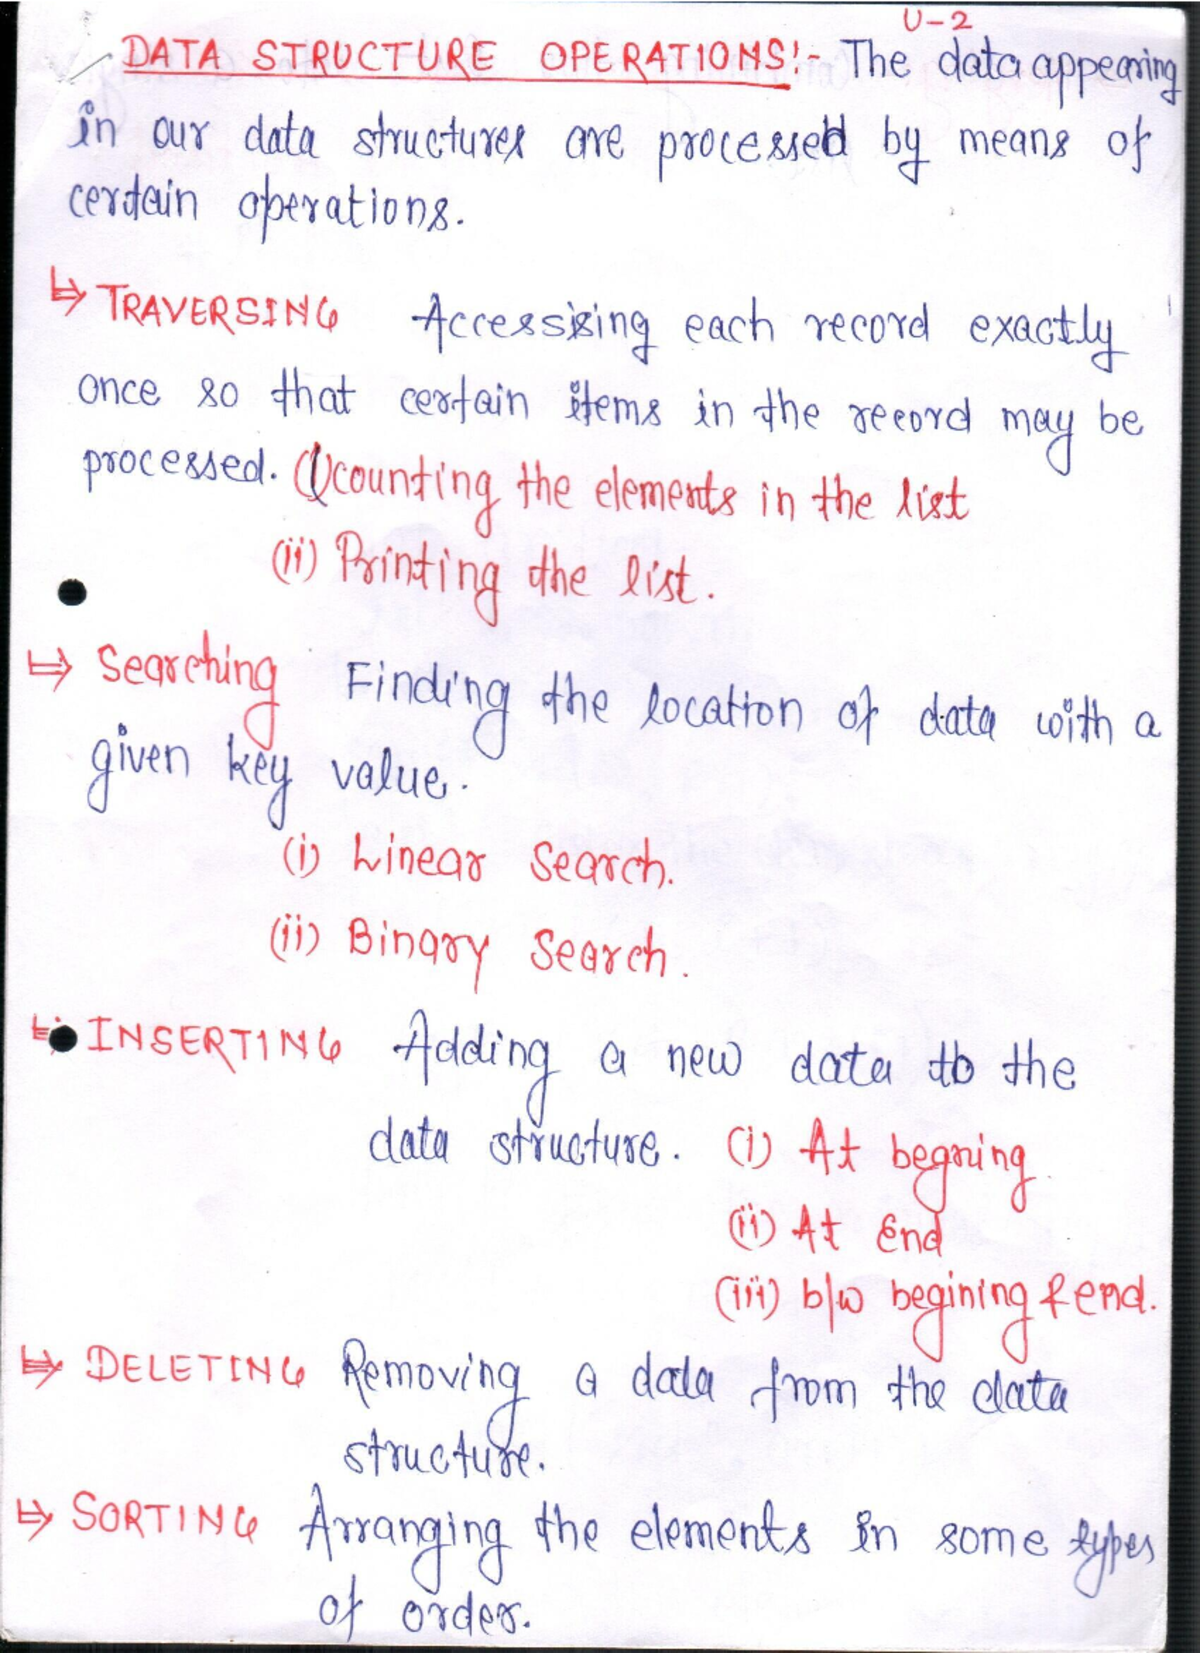 U-2
DATA STRUCTURE OPERATIONS:- The data appearing
in our data structures are processed by means of
certain operations.
TRAVERSING Accessing each record exactly
once so that certain items in the record may be
processed. (i) counting the elements in the list
(ii) Printing the list.
Searching Finding the location of data with a
given key value.
(i) Linear Search.
(ii) Binary Search.
INSERTING Adding a new data to the
data structure. (i) At begning
(ii) At End
(iii) b/w begining & end.
DELETING Removing a data from the data
structure.
SORTING Arranging the elements in some types
of order.